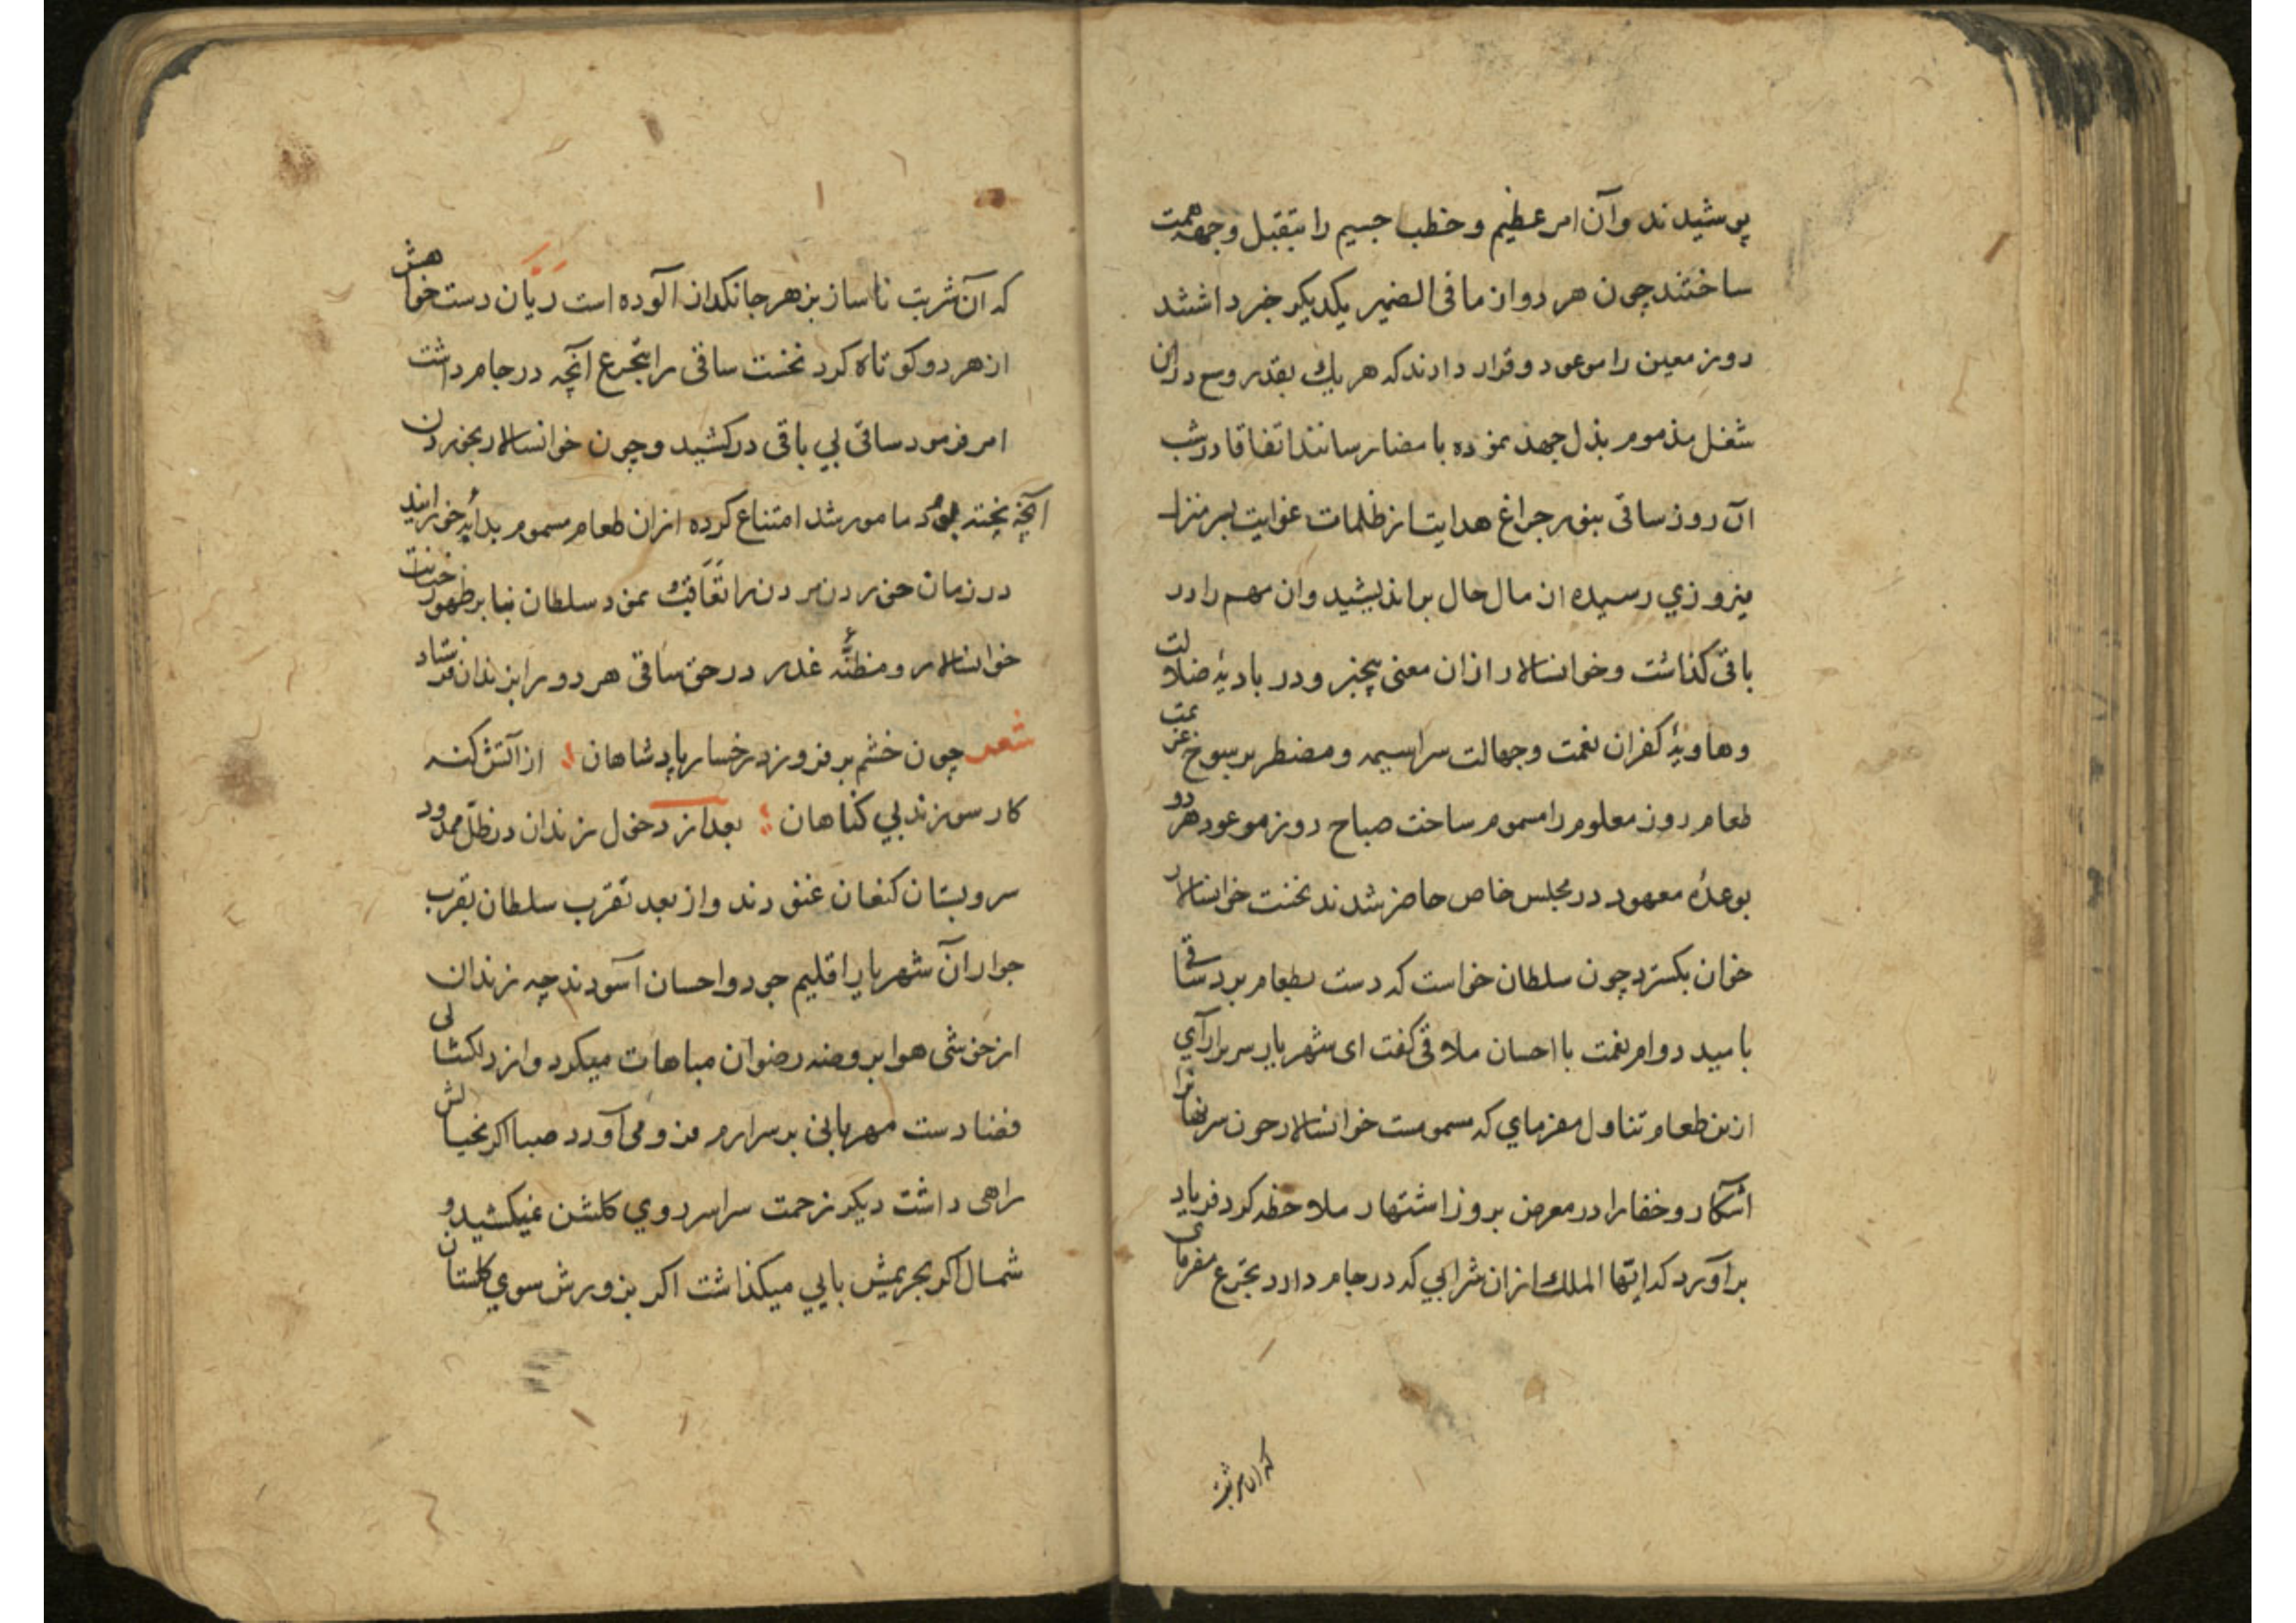 پوشیدند وآن امر عظیم و خطب جسیم را بتقبل وجهه همت
ساختند چون هر دو از ما فی الضمیر یکدیکر خبر داشتند
روز معین را موعود و قرار دادند که هر یك بقدر وسع در آن
شغل مذموم بذل جهد نموده بامضا رسانند اتفاقا در شب
آن روز ساقی بنور چراغ هدایت از ظلمات غوایت بسر منزل
فیروزي رسیده از مال حال براندیشید وآن مهم را در
باقی کذاشت و خوانسالار ازان معنی بیخبر و در بادیهٔ ضلالت
و هاویهٔ کفران نعمت و جهالت سراسیمه و مضطر برسوخ عزیمت
طعام روز معلوم را مسموم ساخت صباح روز موعود هر دو
بوعدهٔ معهود در مجلس خاص حاضر شدند نخست خوانسالار
خوان بکسترد چون سلطان خواست که دست بطعام برد ساقی
بامید دوام نعمت با احسان ملاقی کفت ای شهریار سریرآرآي
ازین طعام تناول مفرماي که مسمومست خوانسالار چون سر نهان
آشکار و خفا را در معرض بروز اشتهار ملاحظه کرد فریاد
برآورد که ایها الملك ازان شرابي که در جام دارد تجرع مفرمای
که آن شربت
که آن شربت ناساز بزهر جانکداز آلوده است ریّان دست خواهش
از هر دو کوتاه کرد نخست ساقی را بتجرع آنچه در جام داشت
امر فرمود ساقی بي باقی درکشید و چون خوانسالار بخوردن
آنچه پخته بود مامور شد امتناع کرده ازان طعام مسموم بدابه خورانید
در زمان خوردن مردن را تعاقب نمود سلطان بنا بر ظهور خیانت
خوانسالار و مظنّهٔ غدر در حق ساقی هر دو را بزندان فرستاد
شعر چون خشم برفروزد رخسار پادشاهان از آتش کنه
کار سوزند بي کناهان بعد از دخول زندان در ظلّ ممدود
سرو بستان کنعان غنودند واز بعد تقرب سلطان بقرب
جوار آن شهریار اقلیم جود واحسان آسودند چه زندان
از خوشی هوا بر روضه رضوان مباهات میکرد واز دلکشائی
فضا دست مهربانی بر سر ارم فرومی آورد صبا اکر بخیالش
راهی داشت دیکر زحمت سراسر روي کلشن نمیکشید و
شمال اکر بحریمش بابي میکذاشت اکر بزورش سوي کلستان